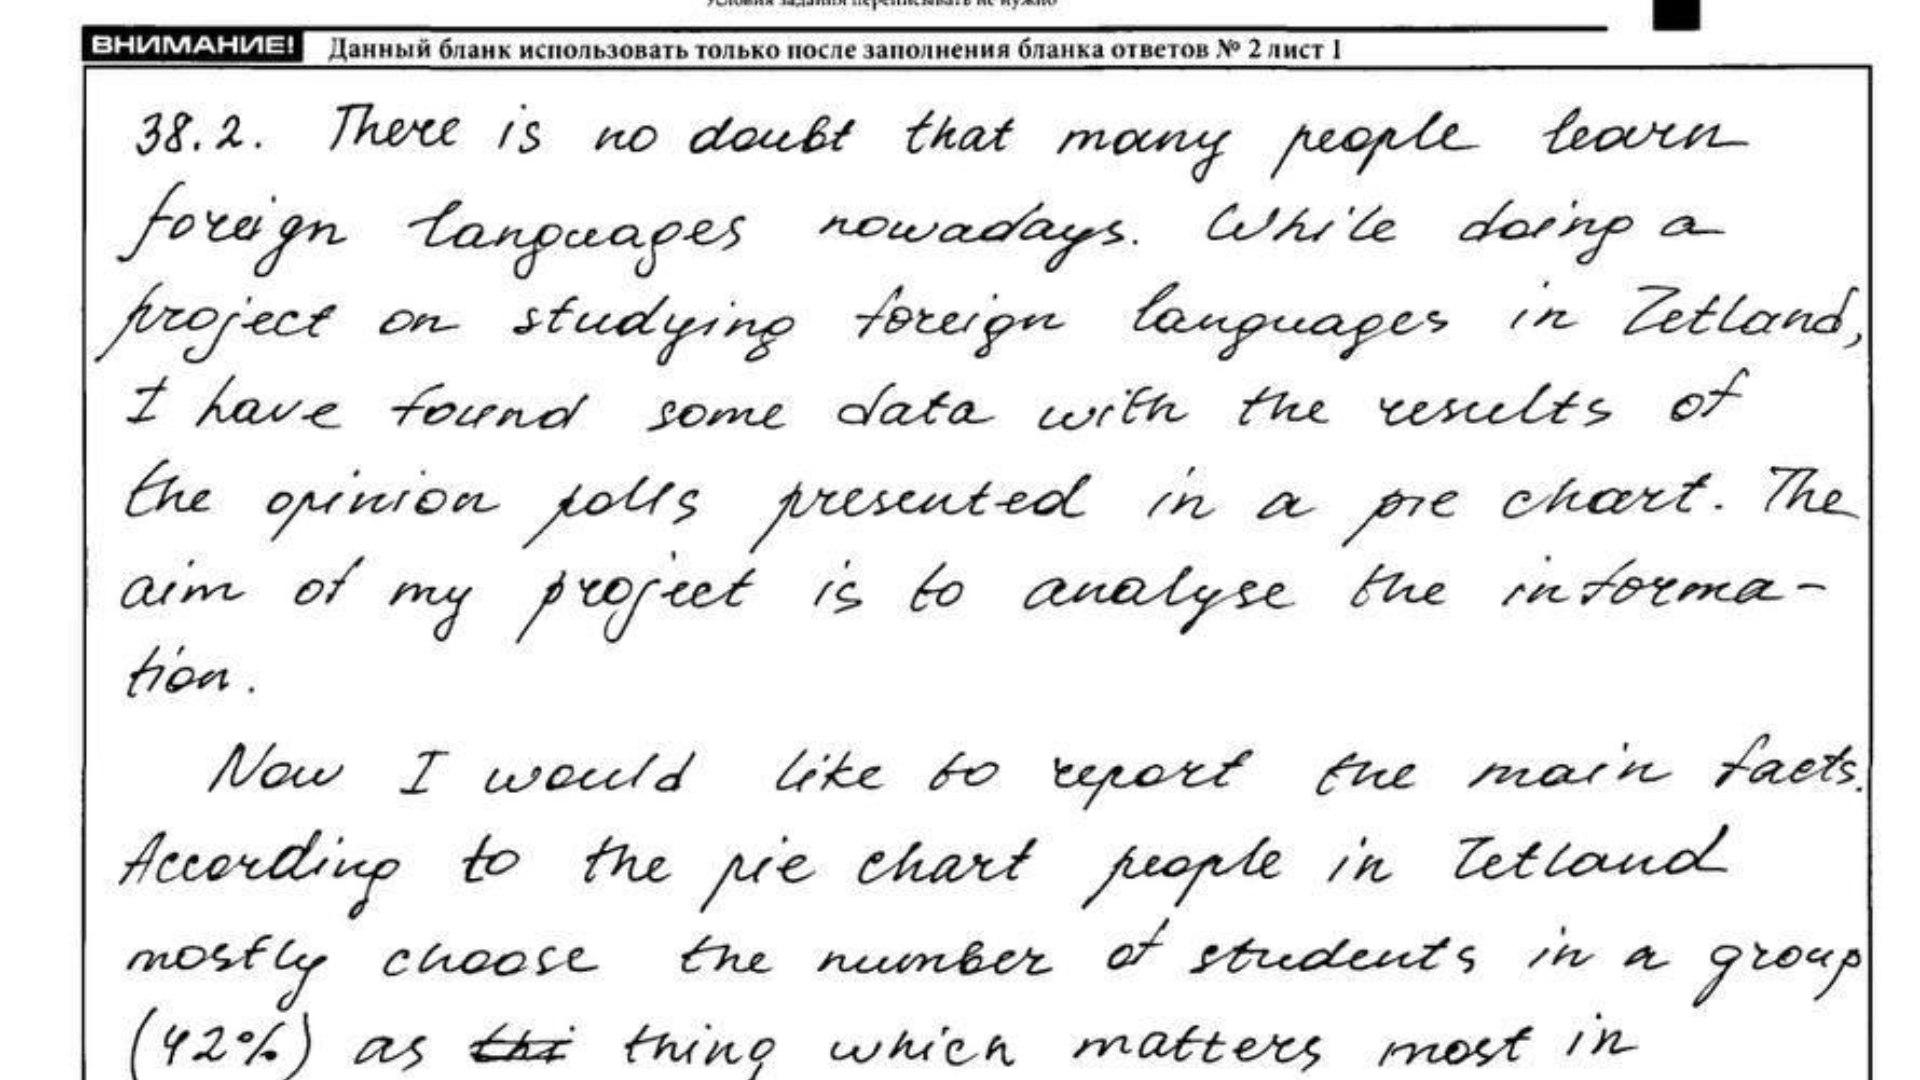 Условия задания переписывать не нужно
ВНИМАНИЕ! Данный бланк использовать только после заполнения бланка ответов № 2 лист 1
38.2. There is no doubt that many people learn
foreign languages nowadays. While doing a
project on studying foreign languages in Zetland,
I have found some data with the results of
the opinion polls presented in a pie chart. The
aim of my project is to analyse the informa-
tion.
Now I would like to report the main facts.
According to the pie chart people in Zetland
mostly choose the number of students in a group
(42%) as thi thing which matters most in